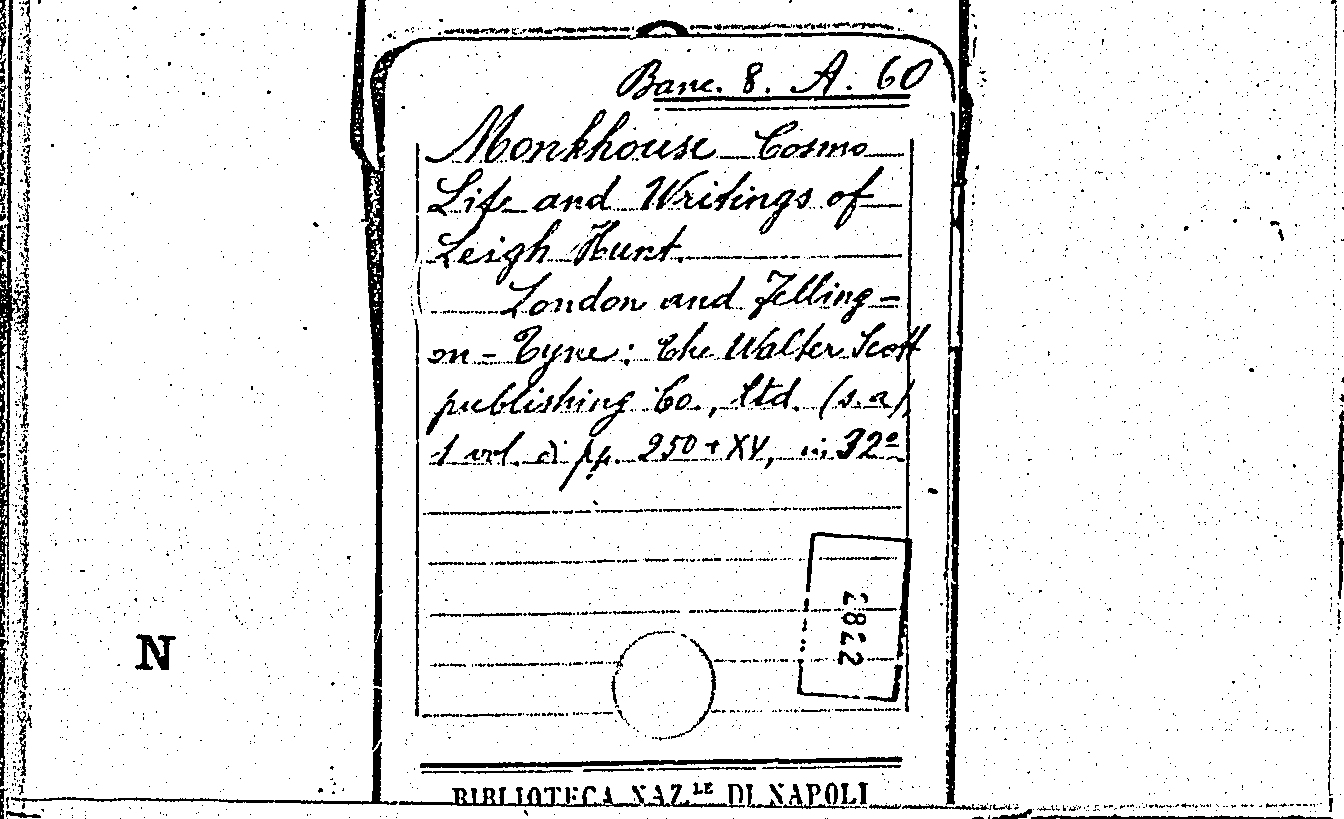 Banc. 8. A. 60
Monkhouse Cosmo
Life and Writings of
Leigh Hunt.
London and Felling-
on-Tyne: The Walter Scott
publishing Co., ltd. (s.a)
1 vol. di pp. 250+XV, in 32º
N
BIBLIOTECA NAZ.LE DI NAPOLI